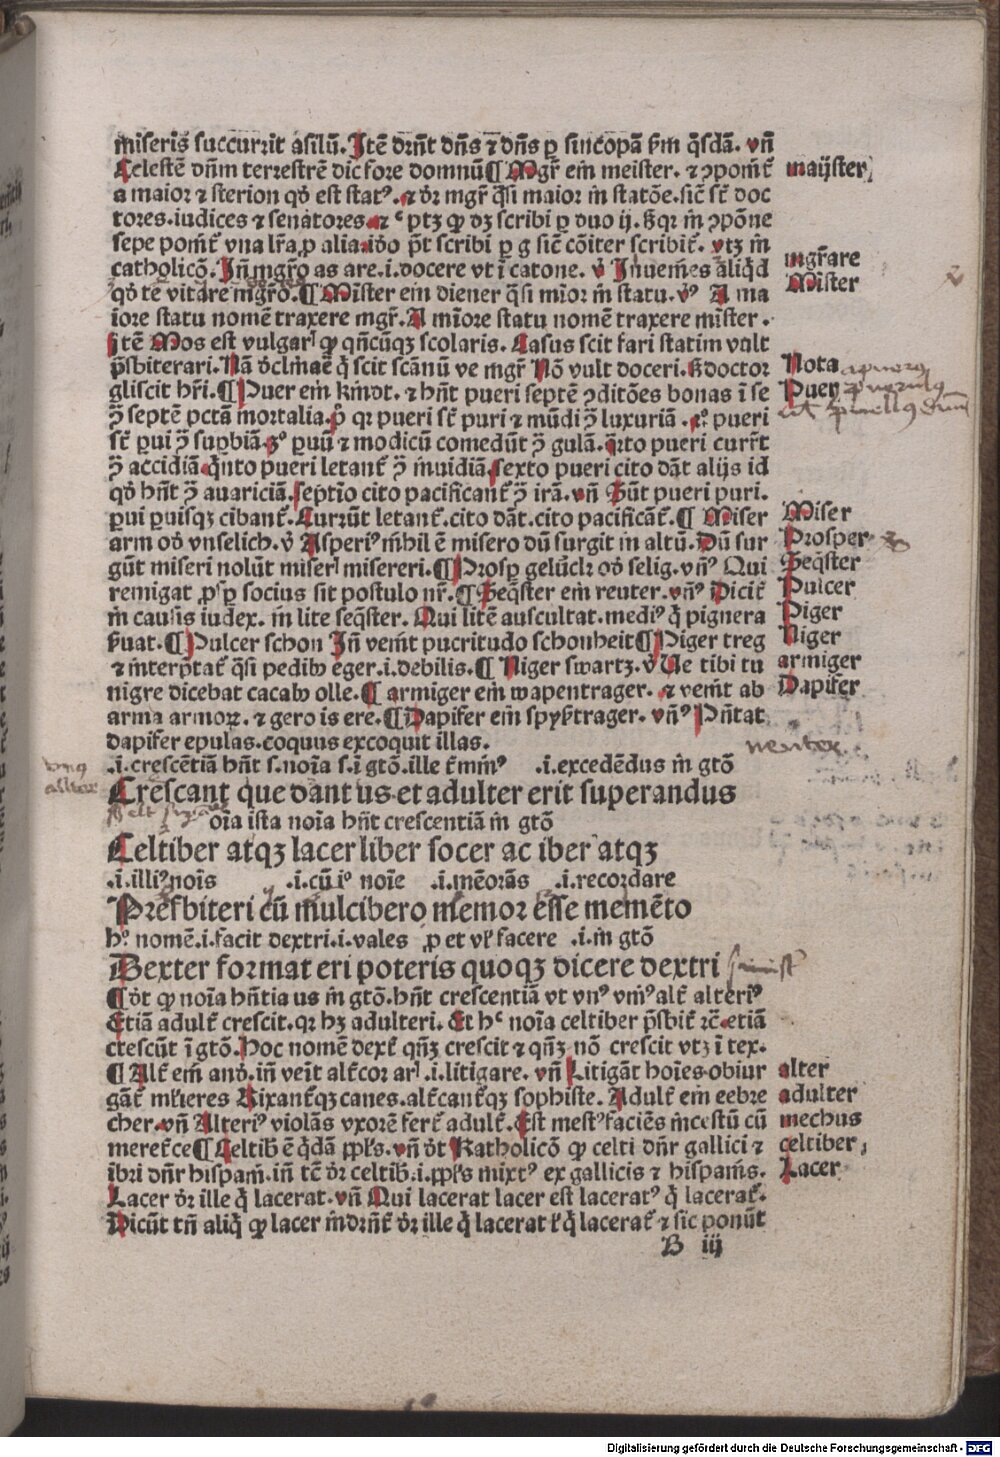 miseris succurrit asilū. Itē dr̄nt dn̄s ⁊ dn̄s ꝑ sincopā ẜm q̄sdā. vn̄
Celestē dn̄m terrestrē dic fore domnū ¶ Mgr̄ em̄ meister. ⁊ ꝯponit᷑
a maior ⁊ sterion qd̄ est statꝰ. ⁊ dr̄ mgr̄ q̄si maior in statōe. sic̄ st̄ doc
tores. iudices ⁊ senatores.
sepe ponit᷑ vna lr̄a ꝓ alia
catholicō. Jn̄ mgr̄o as are .i. docere vt ī catone.
qd̄ te vitare mgr̄o. ¶ Mīster em̄ diener q̄si mīor in statu. v̓ꝰ A ma
iore statu nomē traxere mgr̄. A mīore statu nomē traxere mīster.
Jtē Mos est vulgarꝭ ꝙ qn̄cūqꝫ scolaris. Casus scit fari statim vult
p̄sbiterari. Nō vult doceri. ẜ doctor
gliscit hr̄i. ¶ Puer em̄ kindt. ⁊ hn̄t pueri septē ꝯditōes bonas ī se
ꝯ̄ septē pctā mortalia. p̄ qr pueri st̄ puri ⁊ mūdi ꝯ̄ luxuriā. pueri
st̄ ꝑui ꝯ̄ suꝑbiā. ꝑuū ⁊ modicū comedūt ꝯ̄ gulā. q̄rto pueri curr̄t
ꝯ̄ accidiā q̄nto pueri letant᷑ ꝯ̄ inuidiā sexto pueri cito dāt alijs id
qd̄ hn̄t ꝯ̄ auariciā. septīo cito pacificant᷑ ꝯ̄ irā. vn̄ Sūt pueri puri.
ꝑui ꝑuisqꝫ cibant᷑. Currūt letant᷑. cito dāt. cito pacificāt᷑. ¶ Miser
arm od̓ vnselich. v̓ Asperiꝰ nihil ē misero dū surgit in altū. Dū sur
gūt miseri nolūt miserꝭ misereri. ¶ Prosꝑ od̓ selig. vn̄ꝰ Qui
remigat ꝓsꝑ socius sit postulo nr̄. ¶ Seq̄ster em̄ reuter. vn̄ꝰ Dicit᷑
in causis iudex. in lite seq̄ster. Qui litē auscultat. mediꝰ q̄ pignera
ẜuat. ¶ Pulcer schon Jn̄ venit pucritudo schonheit ¶ Piger treg
⁊ interp̄tat᷑ q̄si pedibꝫ eger .i. debilis. ¶ Niger swartz. v̓ Ue tibi tu
nigre dicebat cacabꝫ olle. ¶ armiger em̄ wapentrager. ⁊ venit ab
arma armoꝝ. ⁊ gero is ere. ¶ Dapifer em̄ spyßtrager. vn̄ꝰ Pn̄tat
dapifer epulas. coquus excoquit illas.
.i. crescētiā hn̄t s. noīa s. ī gtō. ille t᷑minꝰ .i. excedēdus in gtō
Crescant que dant us. et adulter erit superandus
oīa ista noīa hn̄t crescentiā in gtō
Celtiber atqꝫ lacer liber socer ac iber atqꝫ
.i. illiꝰ noīs .i. cū iᵒ noīe .i. mēorās .i. recordare
Presbiteri cū mulcibero memor esse memēto
hᵒ nomē .i. facit dextri .i. vales ꝓ et vꝉ facere .i. in gtō
Dexter format eri poteris quoqꝫ dicere dextri
¶ Nōt ꝙ noīa hn̄tia us in gtō. hn̄t crescentiā vt vnꝰ vniꝰ alt᷑ alteriꝰ
Etiā adult᷑ crescit. qr hꝫ adulteri. Et hᶜ noīa celtiber p̄sbit᷑ rc̄. etiā
crescūt ī gtō. Hoc nomē dext᷑ qn̄qꝫ crescit ⁊ qn̄qꝫ nō crescit vtꝫ ī tex.
¶ Alt᷑ em̄ and̓. in̄ veīt alt᷑cor arꝭ .i. litigare. vn̄ Litigāt hoīes. obiur
gāt᷑ mꝉieres Rixant᷑qꝫ canes. alt᷑cant᷑qꝫ sophiste. Adult᷑ em̄ eebre
cher. vn̄ Alteriꝰ violās vxorē fert᷑ adult᷑. Est mestꝰ faciēs incestū cū
meret᷑ce ¶ Celtib᷑ ē q̄dā ppꝉs. vn̄ dr̄ Katholicō ꝙ celti dn̄r gallici ⁊
ibri dn̄r hispani. in̄ tē dr̄ celtib᷑ .i. ppꝉs mixtꝰ ex gallicis ⁊ hispanis.
Lacer dr̄ ille q̄ lacerat. vn̄ Qui lacerat lacer est laceratꝰ q̄ lacerat᷑.
Dicūt tn̄ aliq̄ ꝙ lacer indrn̄t᷑ dr̄ ille q̄ lacerat ꝉ q̄ lacerat᷑ ⁊ sic ponūt
B iij
maÿster
mgr̄are
Mīster
Nota
Puer
Miser
Prosper
Seq̄ster
Pulcer
Piger
Niger
armiger
Dapifer
alter
adulter
mechus
celtiber
Lacer
Digitalisierung gefördert durch die Deutsche Forschungsgemeinschaft - DFG